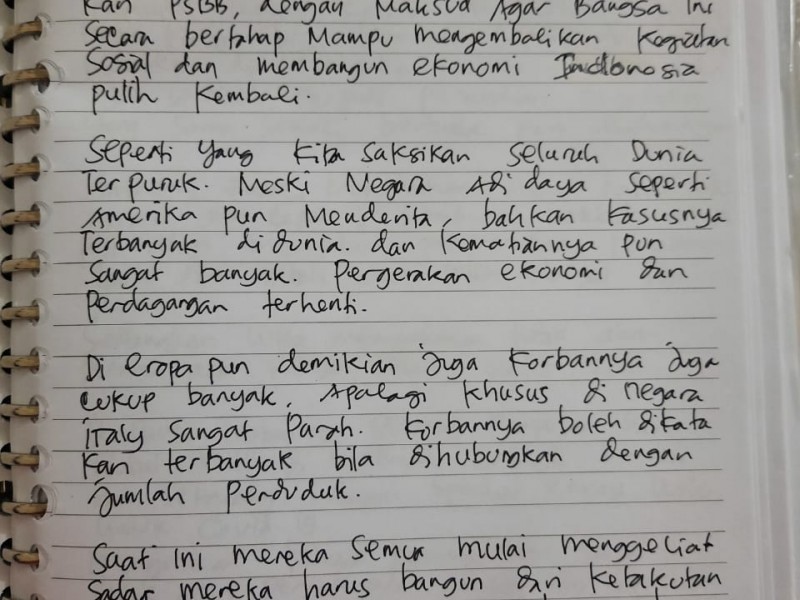 kan PSBB, dengan Maksud Agar Bangsa ini
Secara bertahap Mampu mengembalikan Kegiatan
Sosial dan membangun ekonomi Indonesia
pulih Kembali.
Seperti Yang Kita Saksikan Seluruh Dunia
Terpuruk. Meski Negara Adi daya Seperti
Amerika pun Menderita, bahkan Kasusnya
Terbanyak di dunia. dan Kematiannya pun
Sangat banyak. Pergerakan ekonomi dan
Perdagangan terhenti.
Di eropa pun demikian Juga Korbannya Juga
cukup banyak, Apalagi Khusus di negara
italy Sangat Parah. Korbannya boleh dikata
Kan terbanyak bila dihubungkan dengan
Jumlah Penduduk.
Saat ini mereka Semua mulai menggeliat
Sadar mereka harus bangun dari Ketakutan